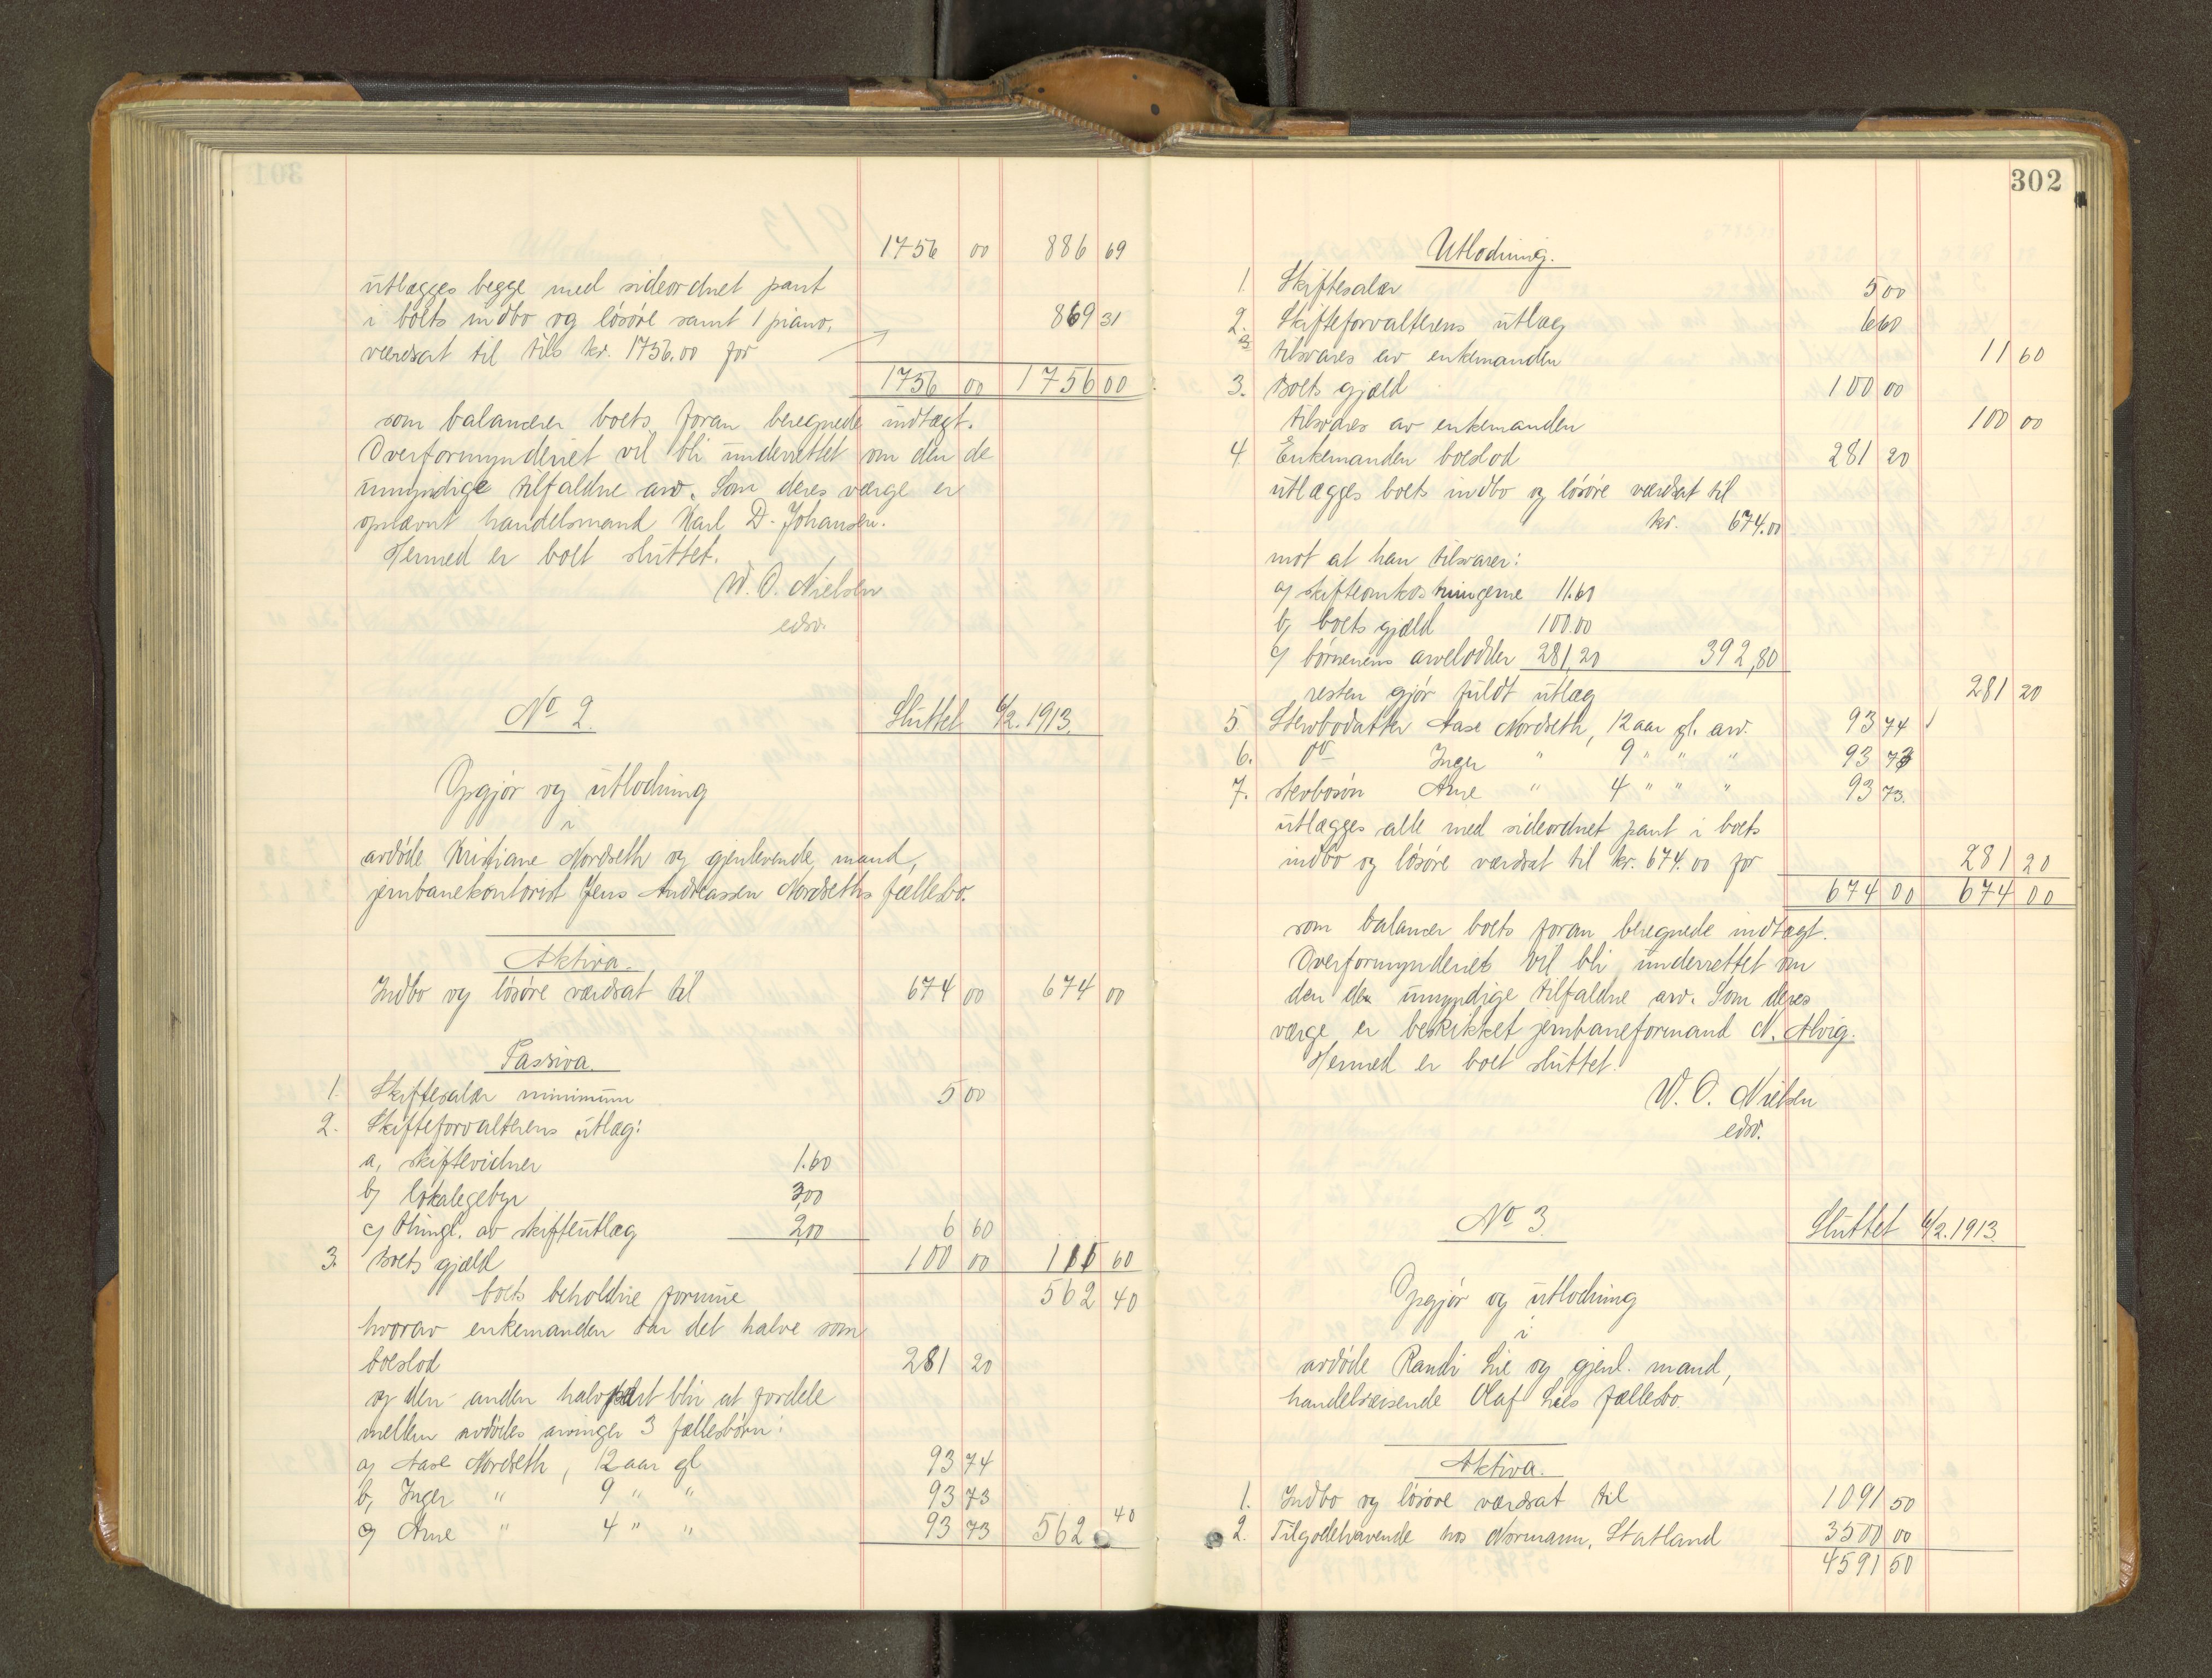 1756 00 886 69
utlægges begge med sideordnet pant
i boets indbo og løsøre samt 1 piano,
værdsat til tils kr. 1756.00 for 869 31
1756 00 1756 00
som balancerer boets foran beregnede indtægt.
Overformynderiet vil bli underrettet om den de
umyndige tilfaldne arv. Som deres værge er
opnævnt handelsmand Karl D. Johansen.
Hermed er boet sluttet.
W. O. Nielsen
edsv.
No 2. Sluttet 6/2. 1913.
Opgjør og utlodning
i
avdøde Kristiane Nordseth og gjenlevende mand,
jernbanekontorist Jens Andreassen Nordseths fællesbo.
Aktiva.
Indbo og løsøre værdsat til 674 00 674 00
Passiva.
1. Skiftesalær minimum 5 00
2. Skifteforvalterens utlæg:
a, skiftevidner 1.60
b) lokalegebyr 3,00
c) thingl. av skifteutlæg 2,00 6 60
3. Boets gjæld 100 00 111 60
boets beholdne formue 562 40
hvorav enkemanden tar det halve som
boeslod 281 20
og den anden halvpart blir at fordele
mellem avdødes arvinger 3 fællesbørn:
a) Aase Nordseth, 12 aar gl 93 74
b, Inger " 9 " " 93 73
c) Arne " 4 " " 93 73 562 40
302
Utlodning.
1. Skiftesalær 5 00
2. Skifteforvalterens utlæg 6 60
tilsvares av enkemanden 11 60
3. Boets gjæld 100 00
tilsvares av enkemanden 100 00
4. Enkemanden boeslod 281 20
utlægges boets indbo og løsøre værdsat til
kr. 674.00
mot at han tilsvarer:
a) skifteomkostningerne 11.60
b) boets gjæld 100.00
c) børnenes arvelodder 281,20 392,80
resten gjør fuldt utlæg 281 20
5. Stervbodatter Aase Nordseth, 12 aar gl. arv. 93 74
6. do Inger " 9 " " " 93 73
7. stervbosøn Arne " 4 " " " 93 73.
utlægges alle med sideordnet pant i boets
indbo og løsøre værdsat til kr. 674.00 for 281 20
674 00 674 00
som balancer boets foran beregnede indtægt.
Overformynderiet vil bli underrettet om
den de umyndige tilfaldne arv. Som deres
værge er beskikket jernbaneformand N. Alvig.
Hermed er boet sluttet.
W. O. Nielsen
edsv.
No 3. Sluttet 6/2. 1913.
Opgjør og utlodning
i
avdøde Randi Lie og gjenl. mand,
handelsreisende Olaf Lies fællesbo.
Aktiva.
1. Indbo og løsøre værdsat til 1091 50
2. Tilgodehavende hos Normann, Statland 3500 00
4591 50